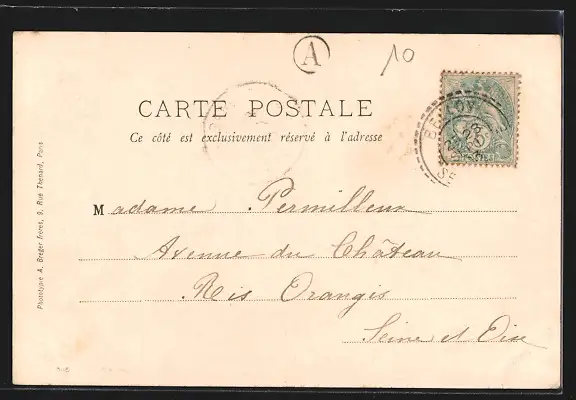 A
10
CARTE POSTALE
Ce côté est exclusivement réservé à l'adresse
Madame Permilleux
Avenue du Château
Ris Orangis
Seine et Oise
Phototypie A. Breger frères, 9, Rue Thénard, Paris